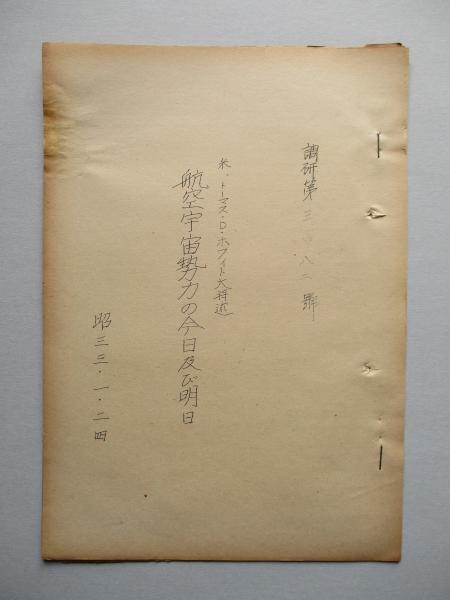 調研第三〇八二號
米、トーマス・D・ホワイト大将述
航空宇宙勢力の今日及び明日
昭三三・一・二四